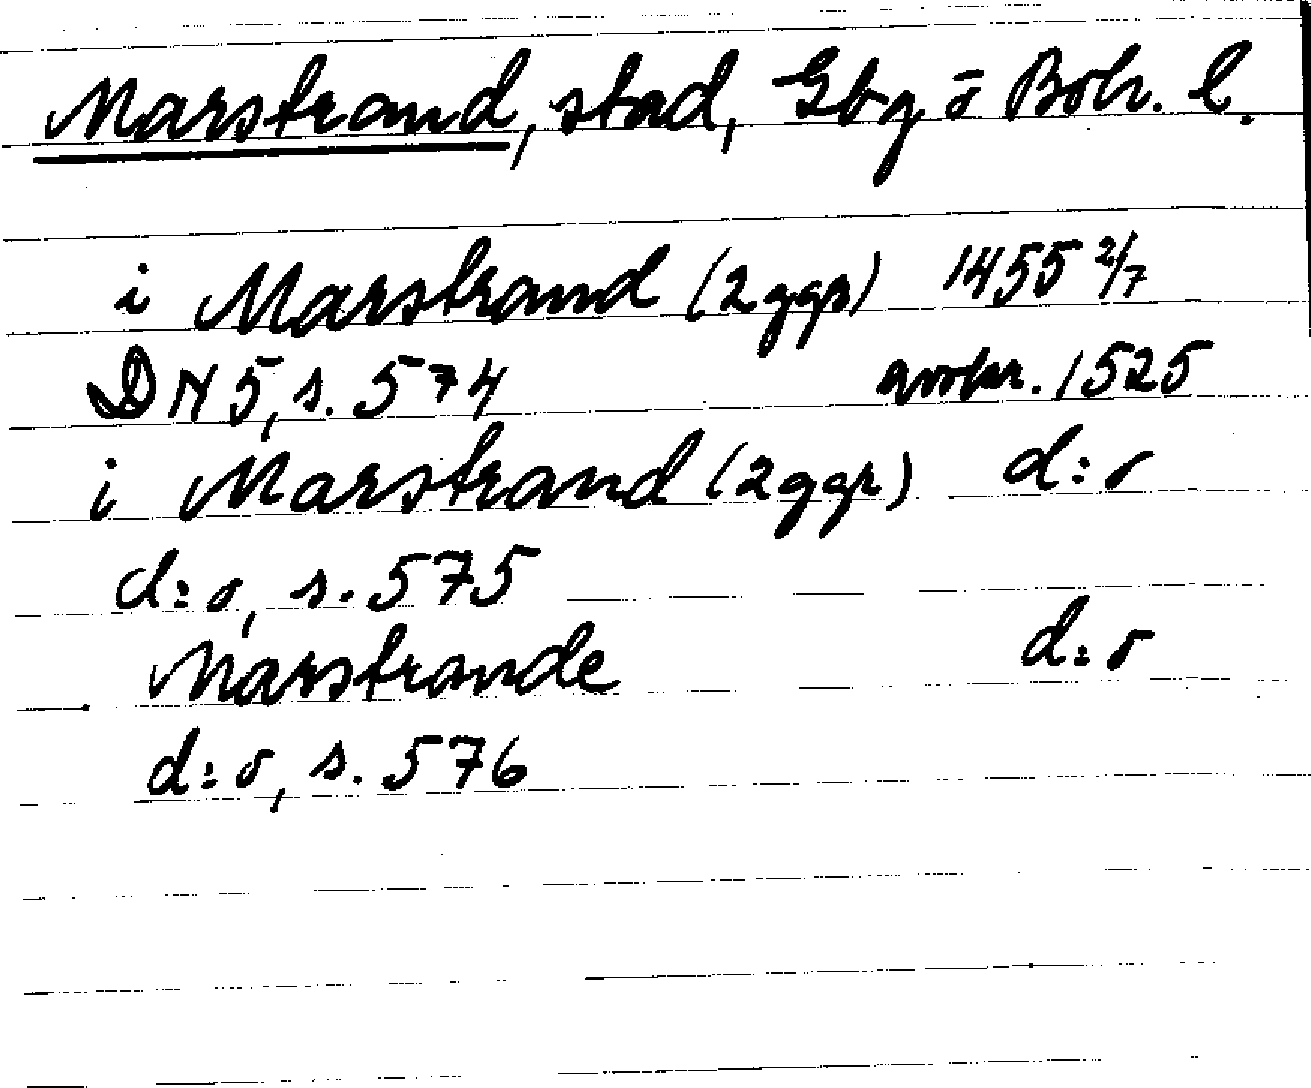 Marstrand, stad, Gbg o Boh. l.
i Marstrand (2 ggr) 1455 2/7
DN 5, s. 574 avskr. 1525
i Marstrand (2 ggr) d:o
d:o, s. 575
Marstrande d:o
d:o, s. 576